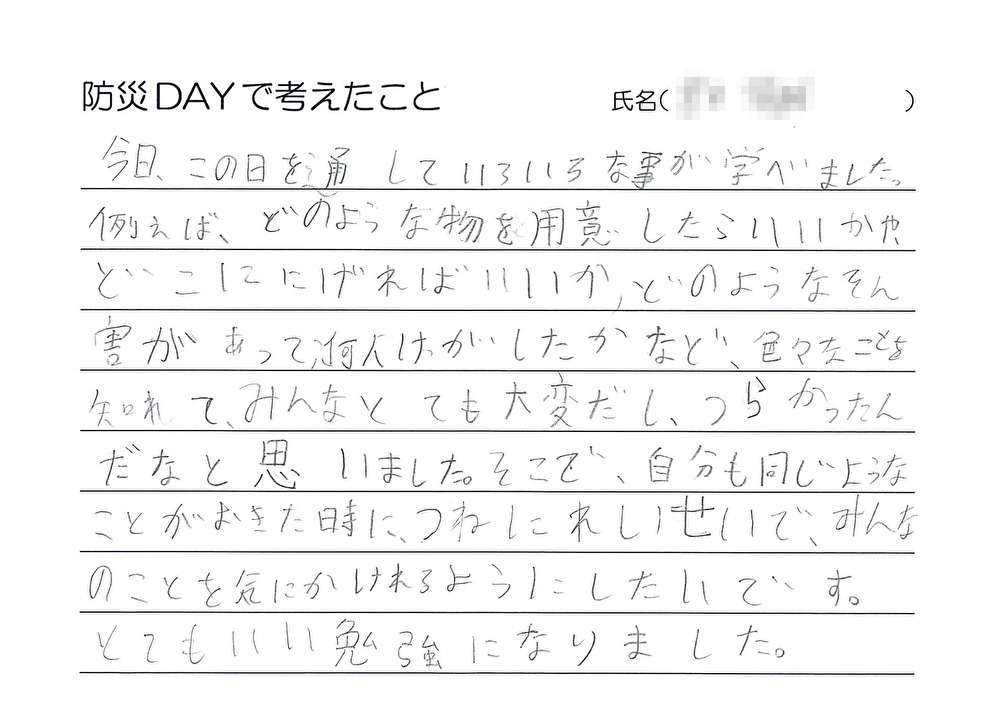 防災DAYで考えたこと
氏名( )
今日、この日を通していろいろな事が学べました。
例えば、どのような物を用意したらいいかや
どこににげればいいか、どのようなそん
害があって何人けがしたかなど、色々なことを
知れて、みんなとても大変だし、つらかったん
だなと思いました。そこで、自分も同じような
ことがおきた時に、つねにれいせいで、みんな
のことを気にかけれるようにしたいです。
とてもいい勉強になりました。